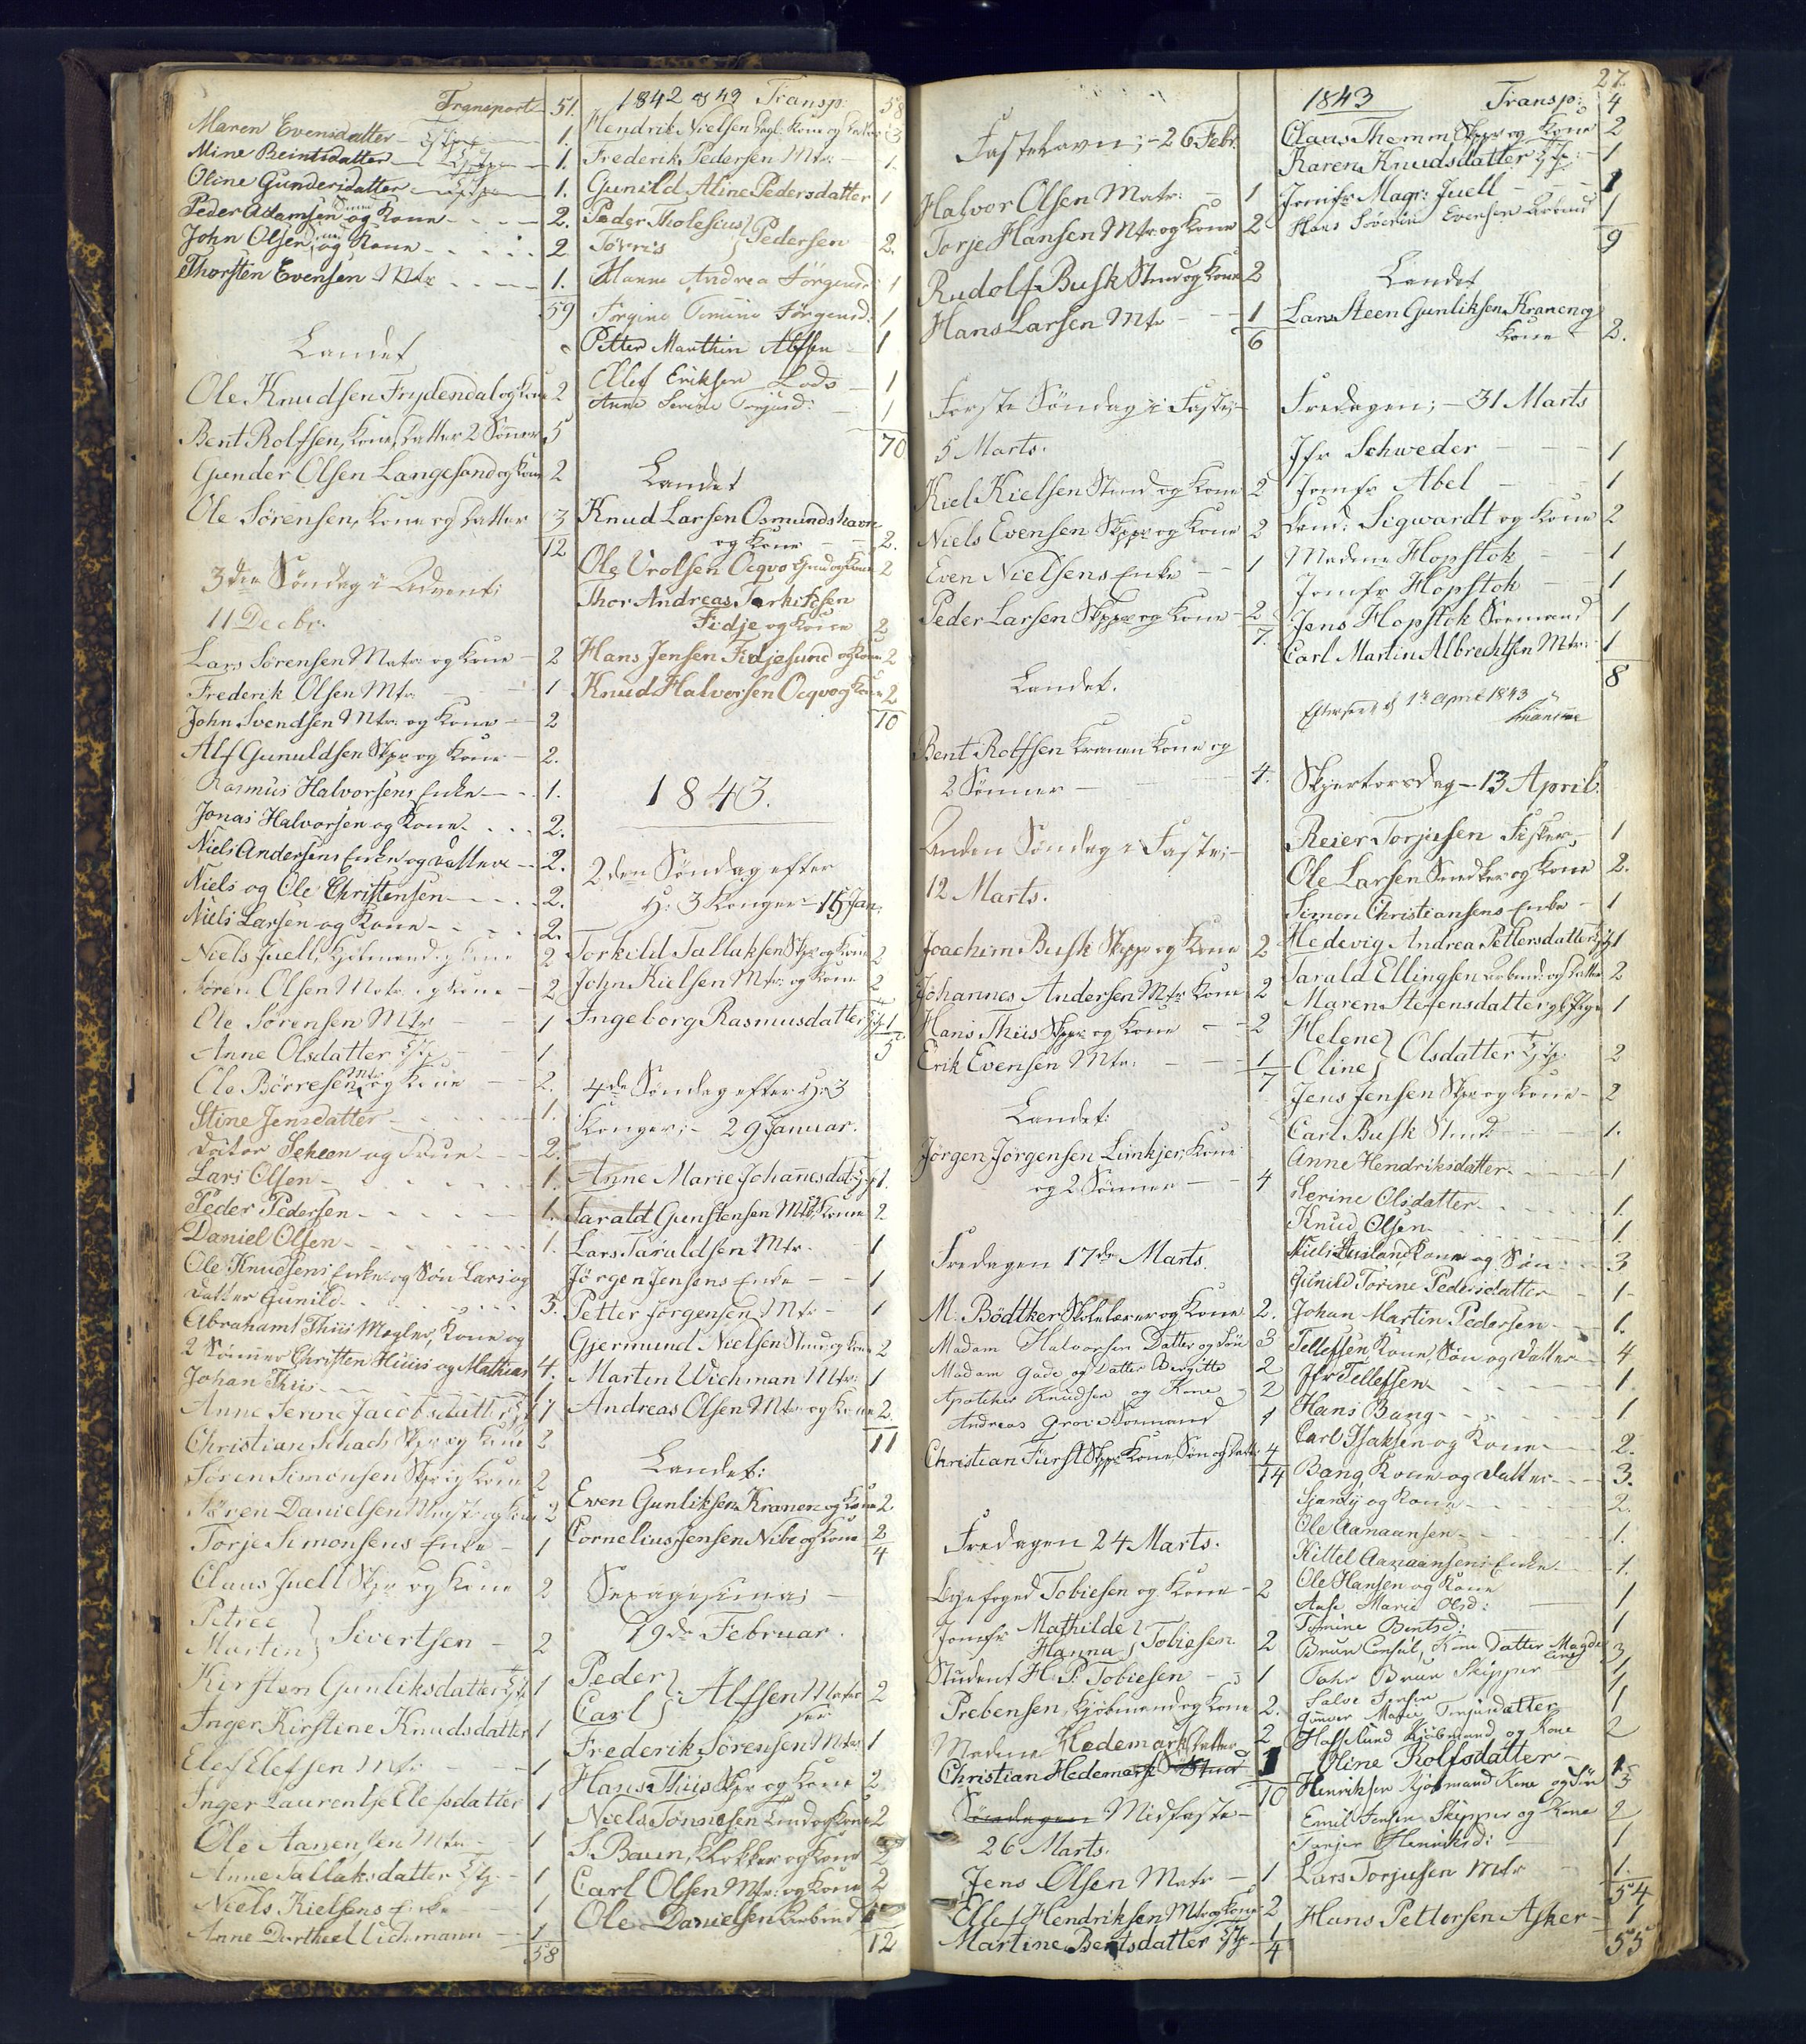 Transport 51.
Maren Evensdatter - - 1.
Mine Beintsdatter - - 1.
Oline Gundersdatter - - 1.
Peder Adamsen og Kone - - - 2.
John Olsen og Kone - - - 2
Thorsten Evensen Mtr - - - 1.
59
Landet
Ole Knudsen Frydendal og Kone 2
Bent Rolfsen, Kone, Datter 2 Sönner 5
Gunder Olsen Langesand og Kone 2
Ole Sörensen, Kone og Datter 3
12
3die Söndag i Advent;
11 Decbr.
Lars Sörensen Matr og Kone - 2
Frederik Olsen Mtr. - 1
John Svendsen Mtr. og Kone - 2
Alf Gunuldsen Skpr og Kone - 2.
Rasmus Halvorsens Enke - 1.
Jonas Halvorsen og Kone - - - 2.
Niels Andersens Enke og Datter - 2.
Niels og Ole Christensen - - - 2.
Niels Larsen og Kone - - - 2.
Niels Juell, og Kone 2
Sören Olsen Matr. og Kone - 2
Ole Sörensen Mtr - 1
Anne Olsdatter - 1
Ole Börresen Mtr og Kone - 2.
Stine Jensdatter - - - 1.
Scheen og Frue - - 2.
Lars Olsen - - - 1.
Peder Pedersen - - - 1.
Daniel Olsen - - - 1.
Ole Knudsens Enke og Sön Lars og
Datter Gunild - - - 3.
Abraham Thiis Mægler, Kone og
2 Sönner Christen Thiis og Mathias 4.
Johan Thiis - - - 1
Anne Serine Jacobsdatter 1
Christian Schach Skpr og Kone 2
Sören Simonsen Skpr og Kone 2
Sören Danielsen og Kone 2
Torje Simonsens Enke - 1
Claus Juell Skpr og Kone 2
Petree
Martin } Sivertsen - 2
Kirsten Gunliksdatter 1
Inger Kirstene Knudsdatter 1
Elef Elefsen Mtr - 1
Inger Laurentje Elefsdatter 1
Ole Aanensen Mtr - 1
Anne Tallaksdatter - 1
Niels Kielsens Enke 1
Anne Dorthee Wichmann - 1
58
1842 & 43 Transp: 58
Hendrik Nielsen Kone og 3
Frederik Pedersen Mtr. - 1.
Gunild Aline Pedersdatter 1
Peder Tholesius
Tönnis } Pedersen 2.
Hanne Andrea Jörgensd: 1
Jörgine Tomine Jörgensd: 1
Petter Marthin Alfsen - 1
Ellef Eriksen Lods - 1
Anne Serine Torjusd: - 1
70
Landet
Knud Larsen Osmundshavn
og Kone - - 2.
Ole Urolsen Ocqvo og Kone 2
Thor Andreas Terkilsen
Fidje og Kone 2
Hans Jensen Fidjesund og Kone 2
Knud Halvorsen Ocqvo og Kone 2
10
1843.
2den Söndag efter
H: 3 Konger - 15 Jan:
Torkild Tallaksen Skpr og Kone 2
John Kielsen Mtr. og Kone 2
Ingeborg Rasmusdatter 1
5
4de Söndag efter H: 3
Konger; - 29 Januar.
Anne Marie Johannesdat 1.
Tarald Gunstensen Mtr, Kone 2
Lars Taraldsen Mtr. - 1
Jörgen Jensens Enke - - 1
Petter Jörgensen Mtr - 1
Gjermund Nielsen og Kone 2
Martin Wichman Mtr: 1
Andreas Olsen Mtr. og Kone 2
11
Landet:
Even Gunliksen Kranen og Kone 2.
Cornelius Jensen Nibe og Kone 2
4
Sexagesima; -
19de Februar.
Peder
Carl } Alfsen Matro
ser 2
Frederik Sörensen Mtr 1
Hans Thiis Skpr og Kone 2
Niels Tönnesen og Kone 2
S. Baun, Klokker og Kone 2
Carl Olsen Mtr. og Kone 2
Ole Danielsen Arbmd 1
12
Fastelavn; - 26 Febr.
Halvor Olsen Matr. - 1
Torje Hansen Mtr og Kone 2
Rudolf Busk Stmd og Kone 2
Hans Larsen Mtr - - 1
6
Förste Söndag i Faste; -
5 Marts.
Kiel Kielsen Stmd og Kone 2
Niels Evensen Skppr og Kone 2
Even Nielsens Enke - - 1
Peder Larsen Skppr og Kone - 2
7.
Landet.
Bent Rolfsen Kranen Kone og
2 Sönner - - 4.
Anden Söndag i Faste; -
12 Marts.
Joachim Busk Skppr og Kone 2
Johannes Andersen Mtr Kone 2
Hans Thiis Skppr og Kone - - 2
Erik Evensen Mtr: - - 1
7
Landet:
Jörgen Jörgensen Linkjer, Kone
og 2 Sönner - - 4
Fredagen 17de Marts.
M. Bödtker Skolelærer og Kone 2.
Madam Halvorsen Datter og Sön 3
Madam Gade og Datter Birgitte 2
Apotheker Knudsen og Kone 2
Andreas Grove Sömand 1
Christian Fürst Skppr Kone Sön og Datter 4
14
Fredagen 24 Marts.
Byefoged Tobiesen og Kone - 2
Jomfr Mathilde
Hanna } Tobiesen 2
Student H. P. Tobiesen - - 1
Prebensen, Kjöbmand og Kone 2.
Madme Hedemark, Datter 2
Christian Hedemark Stud 1
10
Söndagen Midfaste -
26 Marts.
Jens Olsen Matr - 1
Ellef Hendriksen Mtr og Kone 2
Martine Bentsdatter - 1
4
27.
1843 Transp: 4
Claus Themm, Skpr og Kone 2
Karen Knudsdatter - 1
Jomfr Magr: Juell - - - 1
Hans Söverin Evensen Arbmd 1
9
Landet
Lars Steen Gunliksen Kranen og
Kone - 2.
Fredagen; - 31 Marts
Jfr Schweder - - - 1
Jomfr Abel - - 1
Sigwardt og Kone 2
Madme Hopstok - - 1
Jomfr Hopstok - - 1
Jens Hopstok Sömand 1
Carl Martin Albrechtsen Mtr: 1
8
Efterseet d 1te April 1843
Skjertorsdag - 13 April.
Reier Torjusen Fisker - 1
Ole Larsen Snedker og Kone 2.
Simon Christiansens Enke - 1
Hedevig Andrea Pettersdatter 1
Tarald Ellingsen Arbmd: og Datter 2
Maren Stefensdatter 1
Helene
Oline } Olsdatter 2
Jens Jensen Skpr og Kone - 2
Carl Busk Stmd: - - 1.
Anne Hendriksdatter - - - 1
Serine Olsdatter - - - 1.
Knud Olsen - - - 1.
Niels Kone og Sön: - - 3
Gunild Torine Pedersdatter - 1-
Johan Martin Pedersen - - 1.
Tellefsen Kone, Sön og Datter - 4
Jfr Tellefsen - - - 1.
Hans Bang - - - 1
Carl Isaksen og Kone - - 2.
Bang Kone og Datter - - - 3.
og Kone - - - 2.
Ole Aanaansen - - - 1.
Kittel Aanaansens Enke - - 1.
Ole Hansen og Kone
Aase Marie Olsd: - 1
Tomine Bentsd: 1
Bruun Consul, Kone Datter Magde
line 3
Bruun Skipper 1
Salve Jensen 1
Gunvor Marie Torjusdatter
Hasselund Kjöbmand og Kone 2
Oline Rolfsdatter - 1
Henriksen Kjöbmand Kone og Sön 3
Emil Jensen Skipper og Kone 2
Torjer Henriksd: - 1
Lars Torjusen Mtr - 1.
54
Hans Pettersen Asker - 1
55